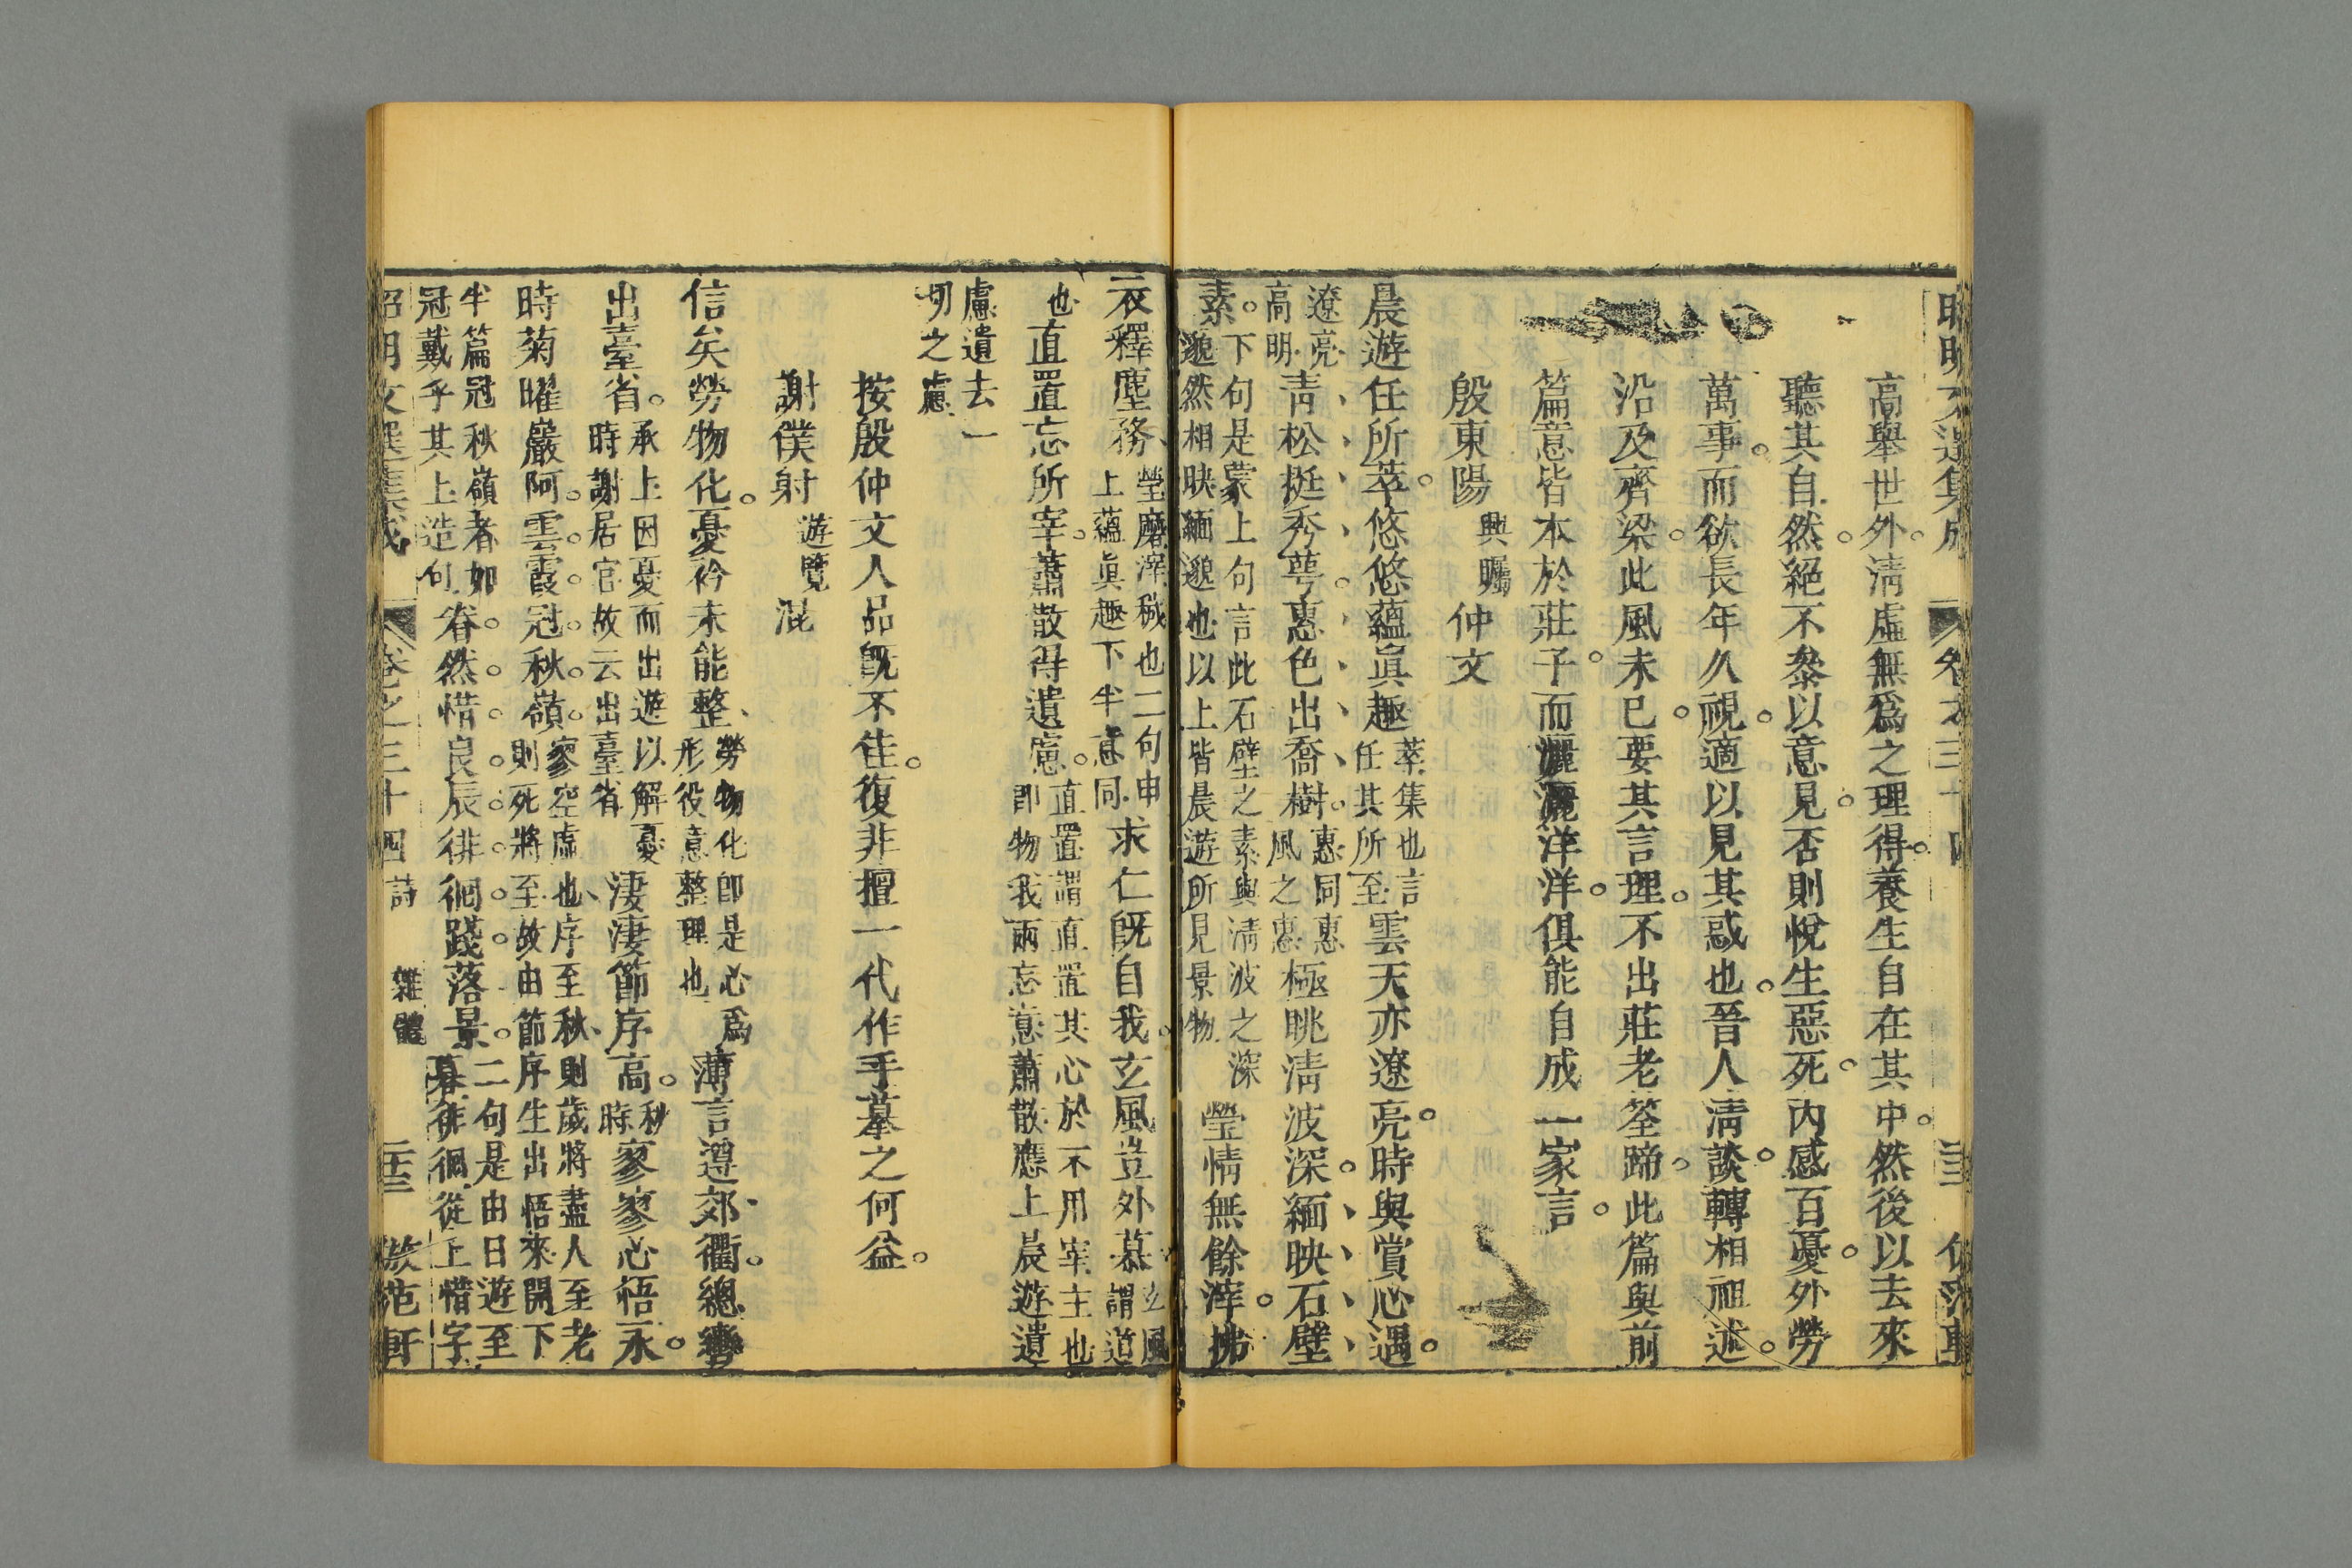 昭明文選集成 卷之三十四
高舉世外清虛無爲之理得養生自在其中然後以去來
聽其自然絕不參以意見否則悅生惡死內感百憂外勞
萬事而欲長年久視適以見其惑也晉人清談轉相祖述
沿及齊梁此風未已要其言理不出莊老筌蹄此篇與前
篇意皆本於莊子而灑灑洋洋俱能自成一家言
殷東陽 興矚 仲文
晨遊任所萃悠悠蘊眞趣 萃集也言任其所至 雲天亦遼亮時與賞心遇
遼亮高明 青松挺秀萼惠色出喬樹 惠同惠風之惠 極眺清波深緬映石壁
素 下句是蒙上句言此石壁之素與清波之深邈然相映緬邈也以上皆晨遊所見景物 瑩情無餘滓拂
衣釋塵務 瑩磨滓穢也二句申上蘊眞趣下半意同 求仁旣自我玄風豈外慕 玄風謂道
也 直置忘所宰蕭散得遺慮 直置謂直置其心於不用宰主也卽物我兩忘意蕭散應上晨遊遺
慮遺去一切之慮
按殷仲文人品旣不佳復非擅一代作手摹之何益
謝僕射 遊覽 混
信矣勞物化憂衿未能整 勞物化卽是心爲形役意整理也 薄言遵郊衢總轡
出臺省 承上因憂而出遊以解憂時謝居官故云出臺省 淒淒節序高 秋時 寥寥心悟永
時菊曜巖阿雲霞冠秋嶺 寥空虛也序至秋則歲將盡人至老則死將至故由節序生出悟來開下
半篇冠秋嶺者如冠戴乎其上造句 眷然惜良辰徘徊踐落景 二句是由日遊至暮徘徊從上惜字
昭明文選集成 卷之三十四 詩 雜體 敬范軒